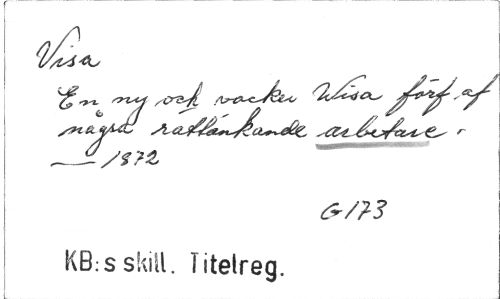 Visa
En ny och vacker Wisa förf. af
några rättänkande arbetare.
— 1872
G173
KB:s skill. Titelreg.